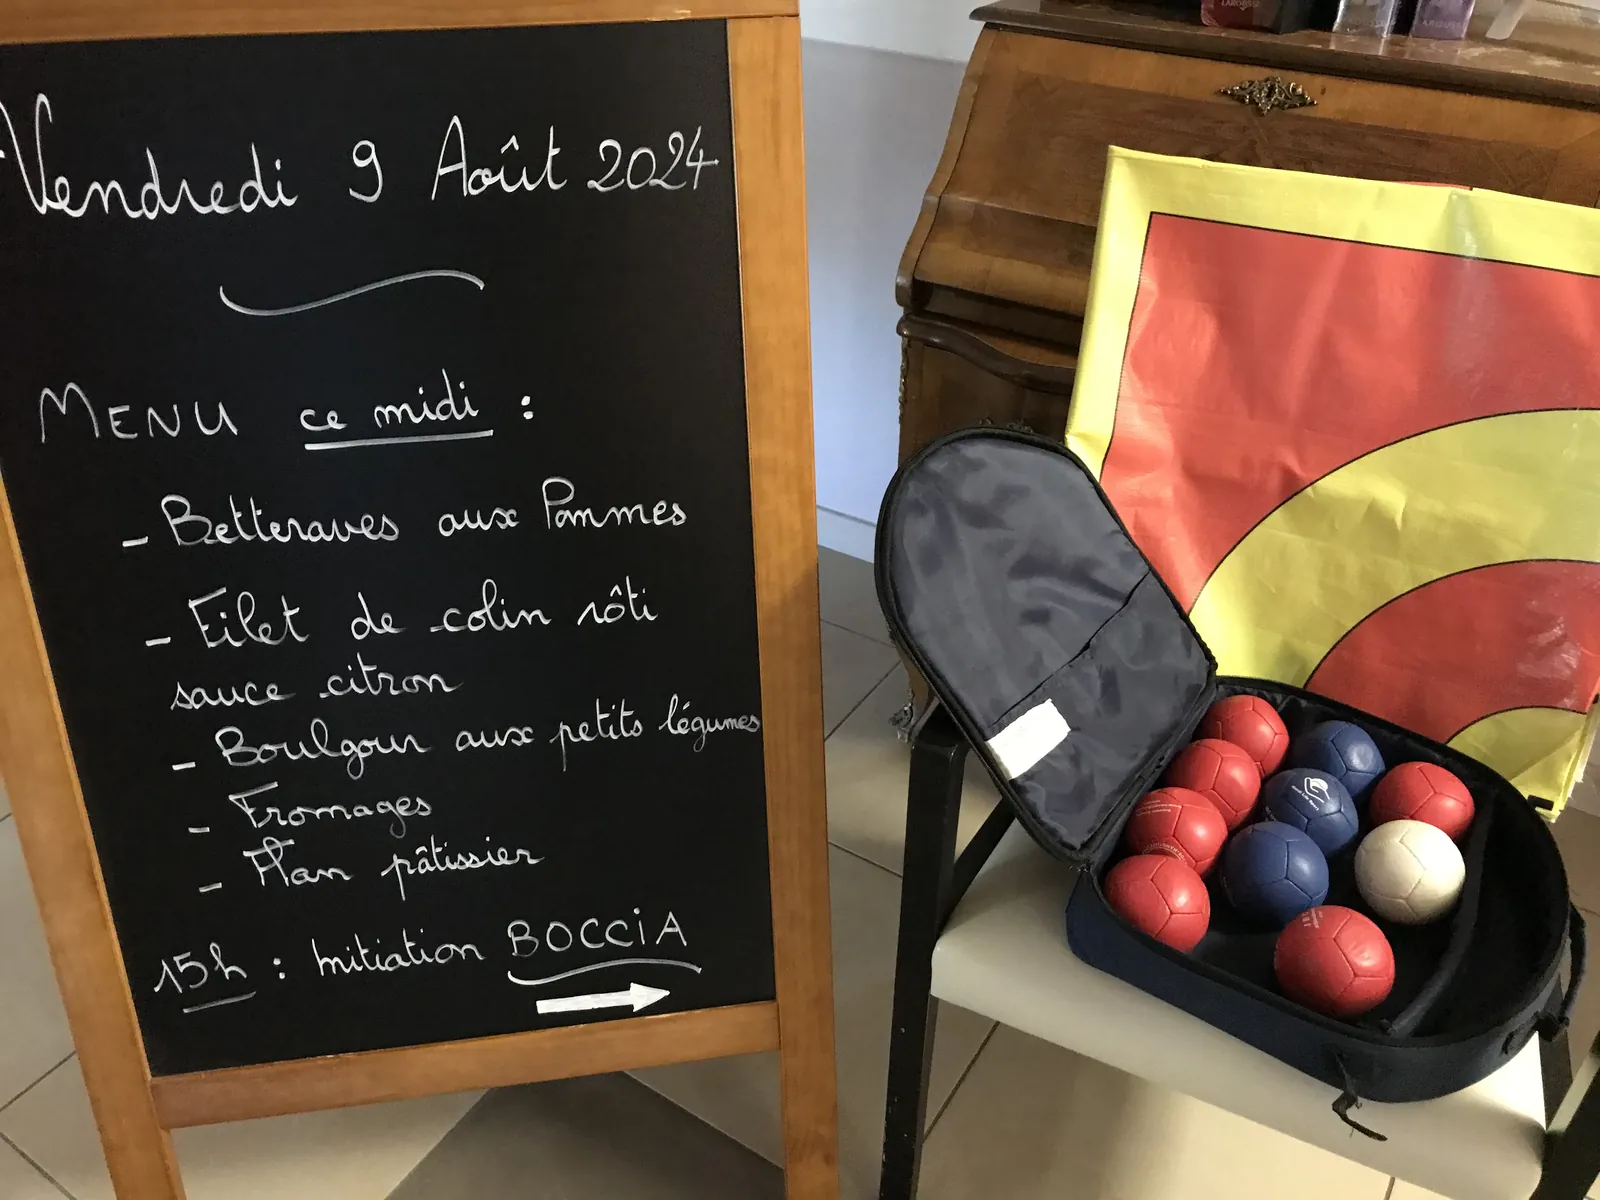 Vendredi 9 Août 2024
MENU ce midi :
- Betteraves aux Pommes
- Filet de colin rôti
sauce citron
- Boulgour aux petits légumes
- Fromages
- Flan pâtissier
15h : Initiation BOCCIA
LAROUSSE